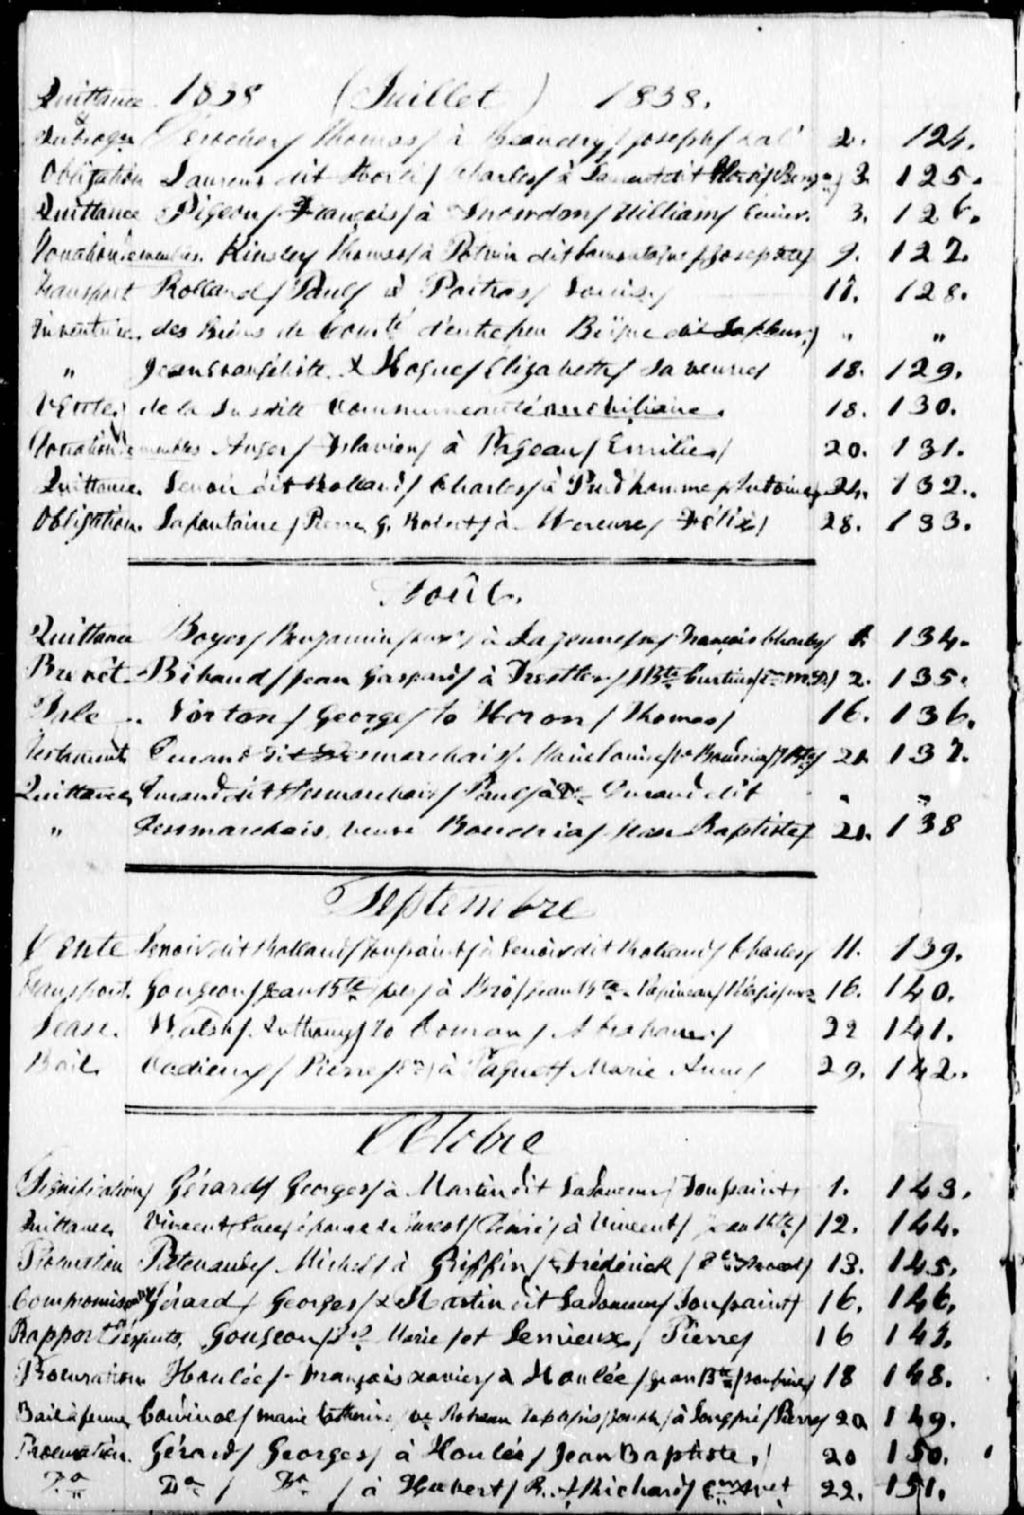 Quittance 1838 (Juillet) 1838.
&
Subrogon Thomas / à Beaudry / Joseph / 2. 124.
Obligation Laurens dit / Charles / à 3. 125.
Quittance Pigeon / François / à Snowdon / William / Junior. 3. 126.
Donation de meubles. Kinsley Thomas / à Potvin dit / Joseph 9. 127.
Transport Rolland / Paul / à Poitras / Louis / 11. 128.
Inventaire des Biens de Comté d'entre feu Béïque " "
" Jean Evangéliste & Hogue / Elizabeth / sa veuve 18. 129.
Vente de la Susdite Communauté mobiliaire. 18. 130.
Donation de meubles Auger / Flavien / à Pageau / Emilie / 20. 131.
Quittance Lenoir dit Rolland / Charles / à Prud'homme / Antoine / 24. 132.
Obligation Lafontaine / Pierre G. Robert / à Mercure / Félix / 28. 133.
Août.
Quittance Boyer / Benjamin / à Lajeunesse / François Charles / 1. 134.
Brevêt Bibaud / Jean Gaspard / à Trestler / JBte Curtius / 2. 135.
Sale " Norton / George / to Heron / Thomas / 16. 136.
Testament Durand dit Desmarchais / Marie Louise / Ve Boudria / JBte / 21. 137.
Quittance Durand dit Desmarchais / Paul / à De Durand dit " "
" Desmarchais veuve Boudria / Jean Baptiste / 21. 138
Septembre
Vente Lenoir dit Rolland / Toussaint / à Lenoir dit Rolland / Charles / 11. 139.
Transport. Goujeon / Jean Bte / à Brô / Jean Bte. Papineau / 16. 140.
Lease. Walsh / Anthony / to / Abraham / 22 141.
Bail Cadieux / Pierre / à Paquet / Marie Anne / 29. 142.
Octobre
Signification / Gérard / Georges / à Martin dit Ladouceur / Toussaint / 1. 143.
Quittance Vincent / Luce / épouse de Turcot / à Vincent / Jean Bte / 12. 144.
Procuration Michel / à Griffin / Frédérick / 13. 145.
Compromis Gérard / Georges / & Martin dit Ladouceur / Toussaint / 16. 146.
Rapport d'experts, Goujeon / Marie / et Lemieux / Pierre / 16 147.
Procuration Houlée / François Xavier / à Houlée / Jean Bte / son frère / 18 148.
Bail à ferme / Marie Catherine / / à Longpré / Pierre / 20 149.
Procuration. Gérard / Georges / à Houlée / Jean Baptiste / 20 150.
Do Do / Do / à Hubert / R. A. Richard / 22. 151.